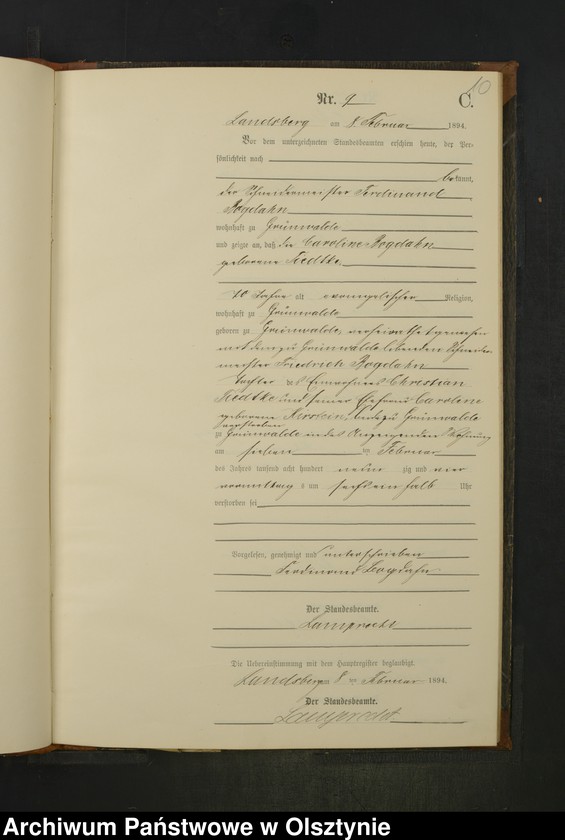 10
Nr. 9 C.
Landsberg am 8. Februar 1894.
Vor dem unterzeichneten Standesbeamten erschien heute, der Per-
sönlichkeit nach
bekannt,
der Schneidermeister Ferdinand
Bogdahn
wohnhaft zu Grünwalde
und zeigte an, daß die Caroline Bogdahn
geborene Tiedtke
70 Jahre alt evangelischer Religion,
wohnhaft zu Grünwalde
geboren zu Grünwalde, verheirathet gewesen
mit dem zu Grünwalde lebenden Schneider-
meister Friedrich Bogdahn
Tochter des Einwohners Christian
Tiedtke und seiner Ehefrau Caroline
geborene beide zu Grünwalde
verstorben
zu Grünwalde in des Anzeigenden Wohnung
am sieben ten Februar
des Jahres tausend acht hundert neun zig und vier
vormittags um sechs ein halb Uhr
verstorben sei
Vorgelesen, genehmigt und unterschrieben
Ferdinand Bogdahn
Der Standesbeamte.
Lamprecht
Die Uebereinstimmung mit dem Hauptregister beglaubigt.
Landsberg am 8 ten Februar 1894.
Der Standesbeamte.
Lamprecht
Archiwum Państwowe w Olsztynie